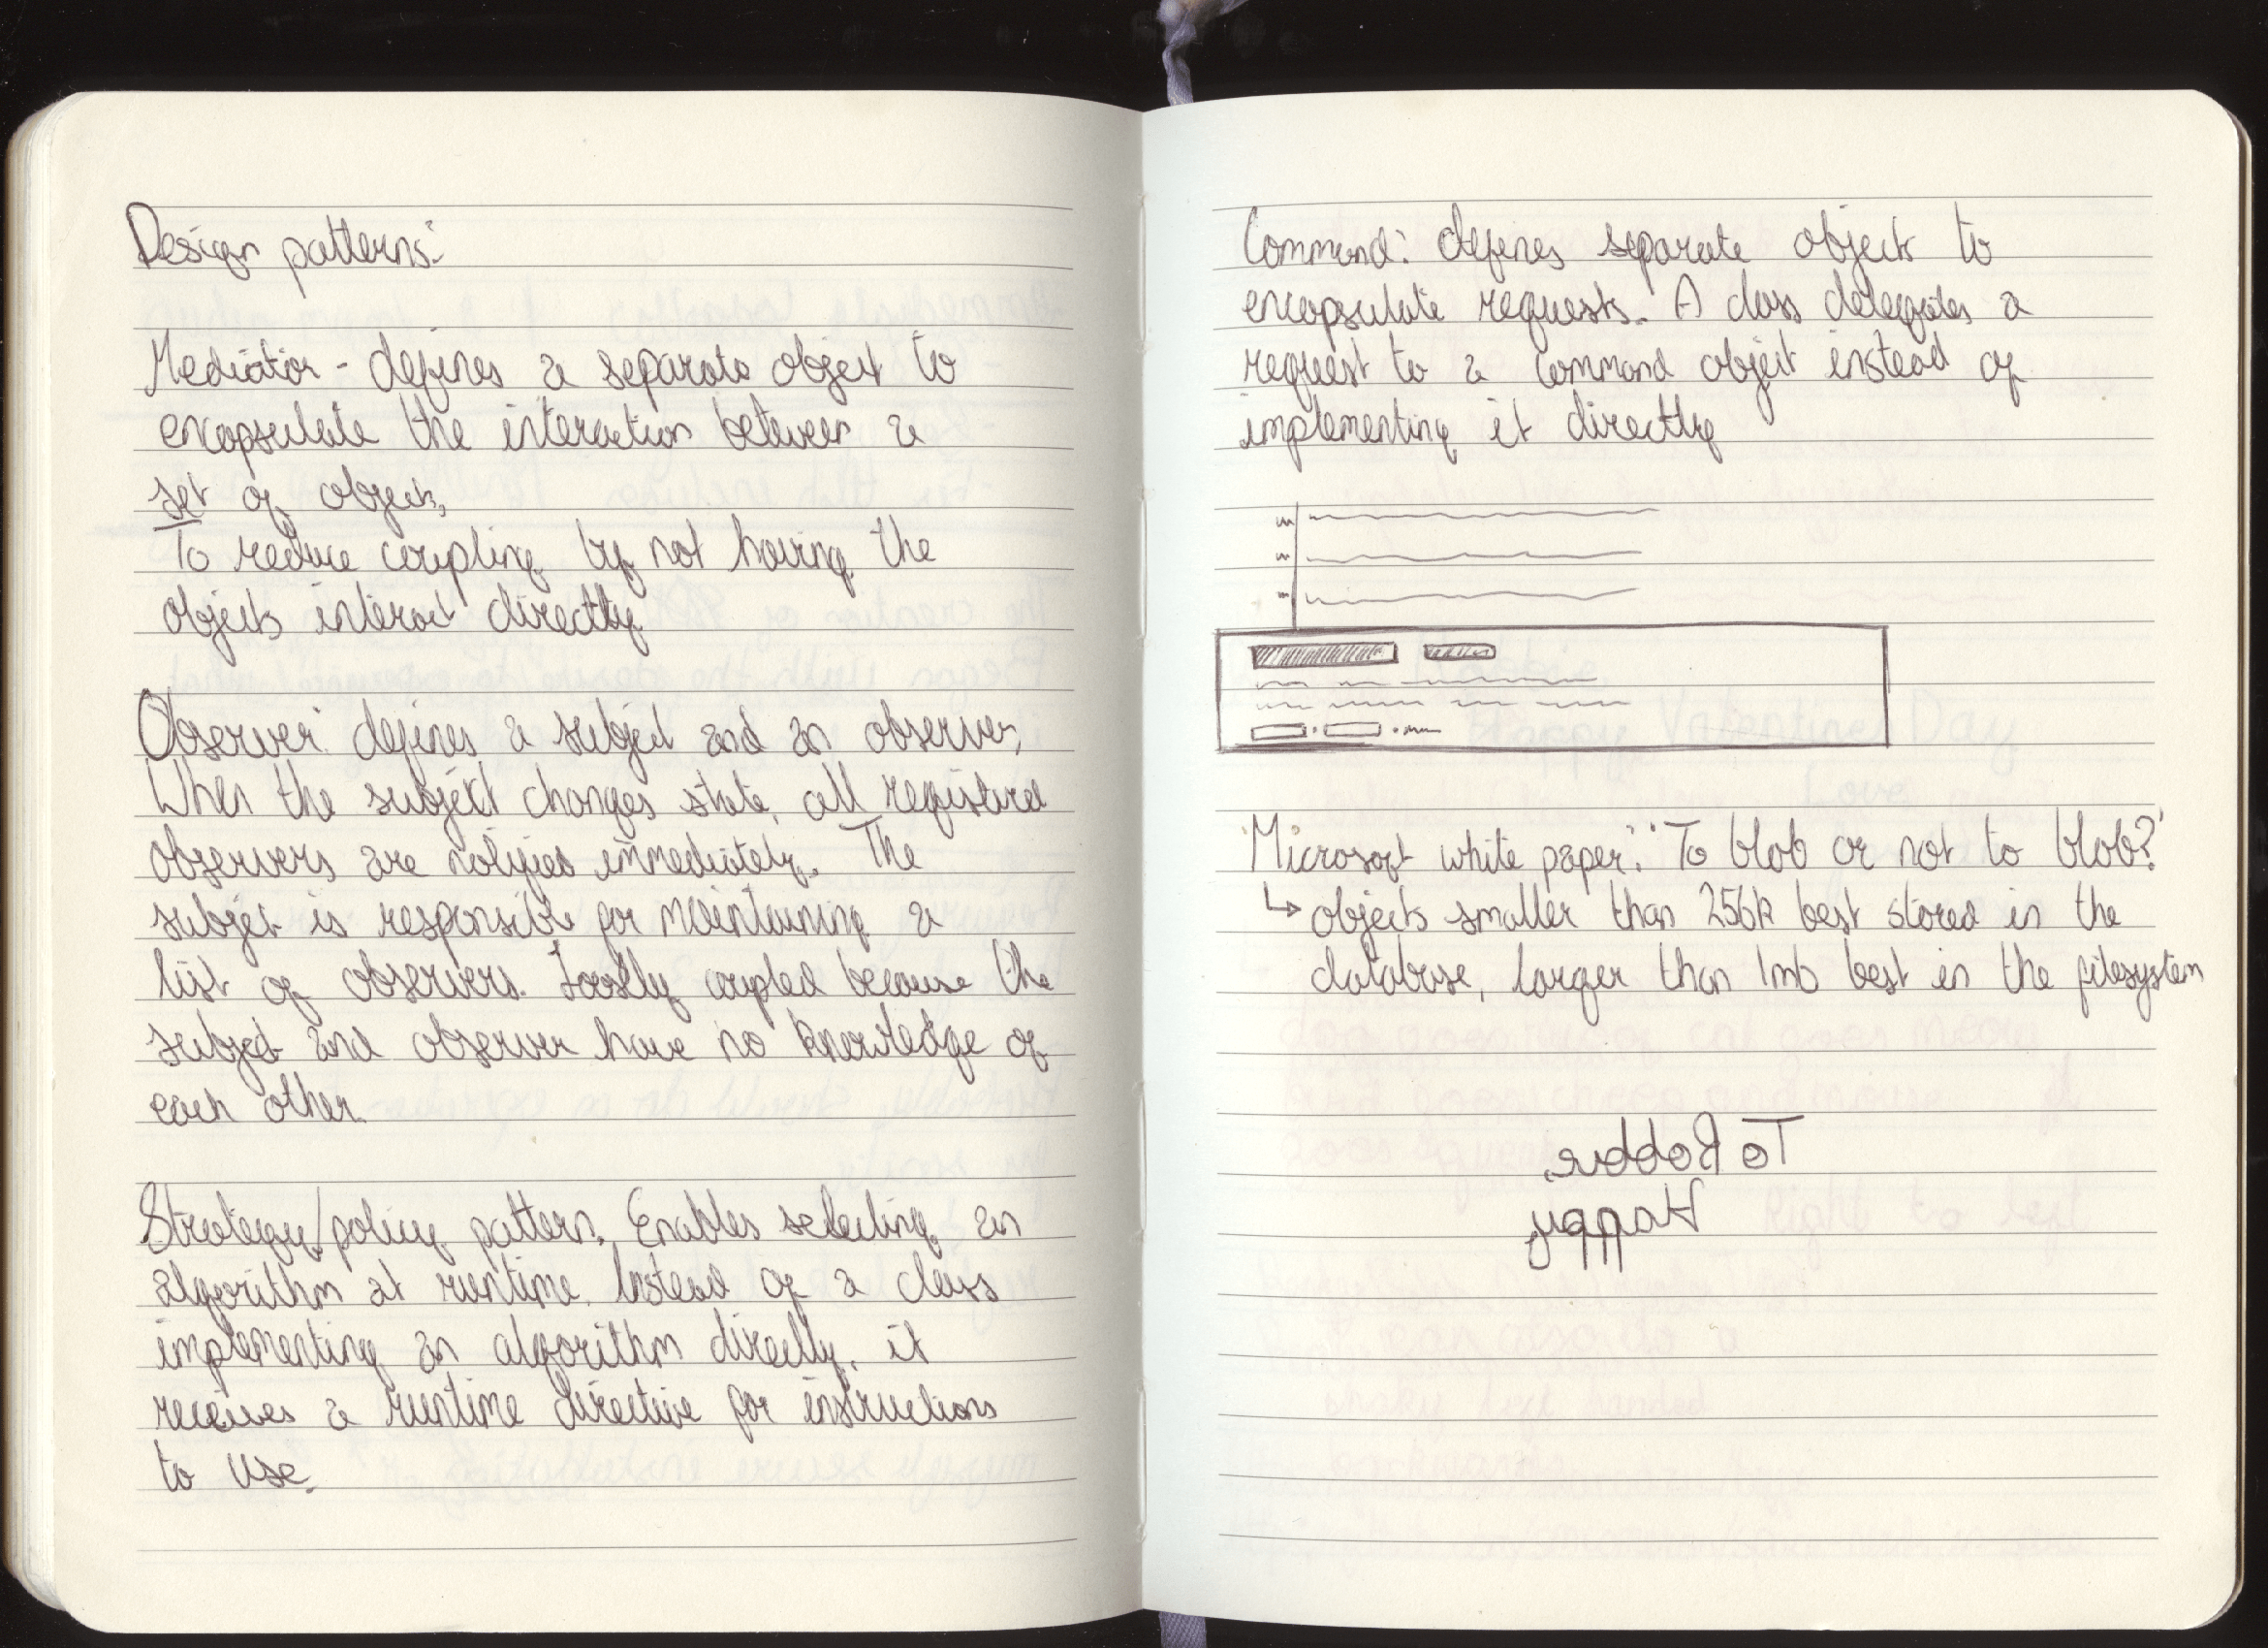 Design patterns:
Mediator - defines a separate object to
encapsulate the interaction between a
set of objects,
To reduce coupling by not having the
objects interact directly
Observer: defines a subject and an observer,
When the subject changes state, all registered
observers are notified immediately. The
subject is responsible for maintaining a
list of observers. Loosly coupled because the
subject and observer have no knowledge of
each other.
Strategy/policy pattern. Enables selecting an
algorithm at runtime. Instead of a class
implementing an algorithm directly, it
receives a runtime directive for instructions
to use.
Command: defines separate object to
encapsulate requests. A class delegates a
request to a command object instead of
implementing it directly
Microsoft white paper: 'To blob or not to blob?'
↳ objects smaller than 256k best stored in the
database, larger than 1mb best in the filesystem
To
Happy
Happy Valentines Day
Love